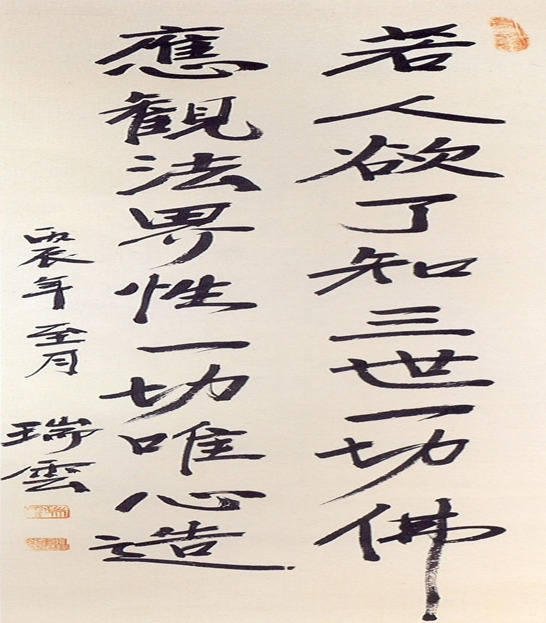 若人欲了知三世一切佛
應観法界性一切唯心造
丙辰年至月
瑞雲